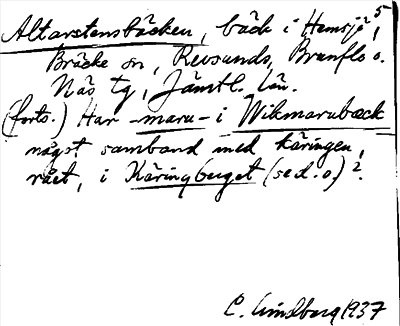 Altarstensbäcken, bäck i Hemsjö, 5
Bräcke sn, Revsunds, Brunflo o.
Näs tg, Jämtl. län.
(forts.) Har -maru- i Wikmarubæck
något samband med käringen,
rået, i Käringberget (se d. o.)?
C. Lindberg 1937